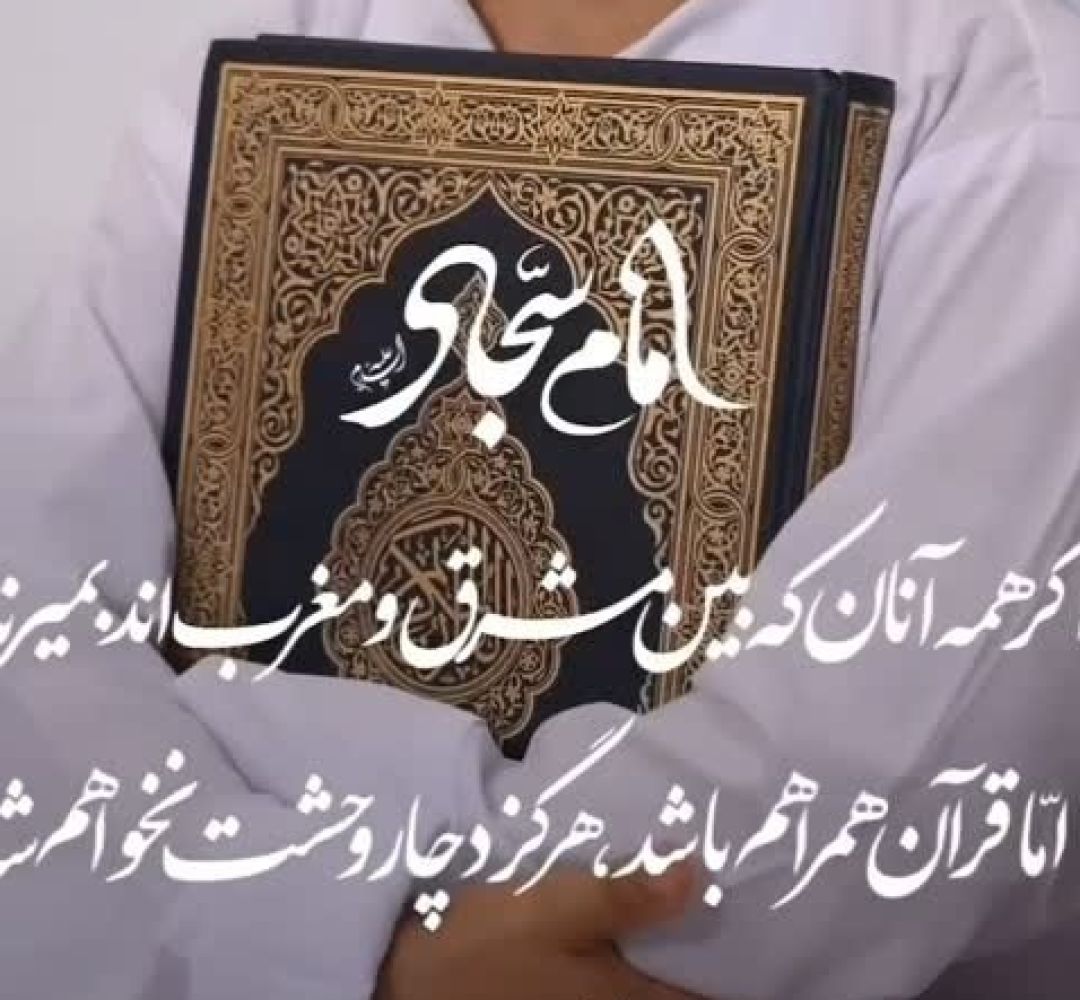 امام سجّاد
علیه السلام
اگر همه آنان که بین مشرق و مغرب‌اند، بمیرند
امّا قرآن همراهم باشد، هرگز دچار وحشت نخواهم ش